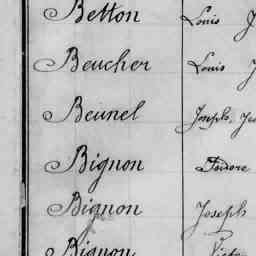 Betton Louis J
Beucher Louis J
Beunel Joseph, Je
Bignon Isidore
Bignon Joseph
Bignon Victo